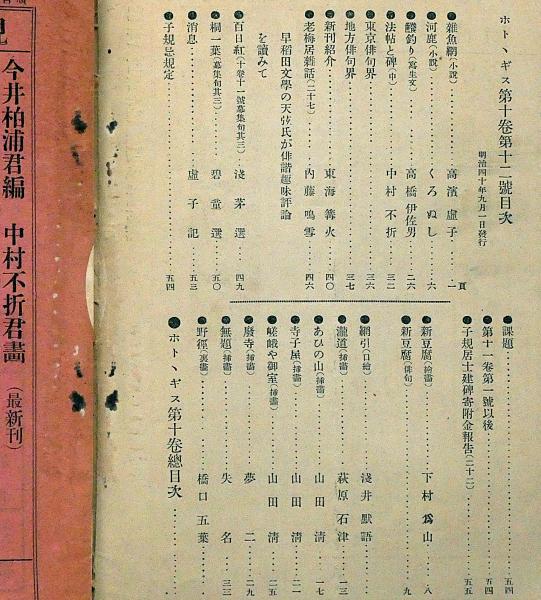 ホトヽギス第十卷第十二號目次
明治四十年九月一日發行
●雜魚網(小説)………高濱虛子…一頁
●河鹿(小説)………くろぬし…六
●鯊釣り(寫生文)………高橋伊佐男…二六
●法帖と碑(中)………中村不折…三二
●東京俳句界………三六
●地方俳句界………三七
●新刊紹介………東海籌火…四〇
●老梅居雜話(二十七)………內藤鳴雪…四六
早稻田文學の天弦氏が俳諧趣味評論
を讀みて
●百日紅(十卷十一號募集句其三)淺茅選…四九
●桐一葉(募集句其三)………碧堂選…五〇
●消息………虛子記…五三
●子規忌規定………五四
●課題………五四
●第十一卷第一號以後………五四
●子規居士建碑寄附金報告(二十二)………五五
●新豆腐(繪畵)………下村爲山…八
●新豆腐(俳句)………九
●網引(口繪)………淺井默語
●瀧道(挿畵)………萩原石津…一三
●あひの山(挿畵)………山田淸…一七
●寺子屋(挿畵)………山田淸…二一
●嵯峨や御室(挿畵)………山田淸…二五
●廢寺(挿畵)………夢二…二九
●無題(挿畵)………失名…三三
●野徑(裏畵)………橋口五葉
●ホトヽギス第十卷總目次………
今井柏浦君編 中村不折君畵 (最新刊)